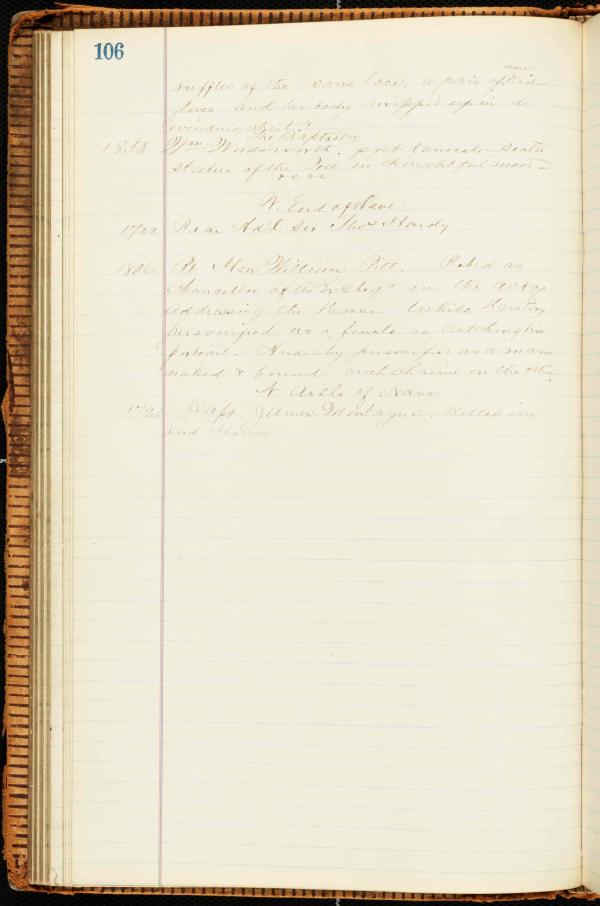 106
new
ruffles of the same lace, a pair of Kid
gloves and her body wrapped up in a
winding sheet."
The Baptistry
1850 Wm Wordsworth. poet laureate Seated
Statue of the Poet in thoughtful mood
&c &c
W. End of Nave.
1722 Rear Adl Sir Thos Hardy.
1806 Rt Hon. William Pitt. Robed as
Chancellor of the in the act of
addressing the House. While History
personified as a female is Catching his
portrait. Anarchy personified as a man
naked & bound with chains on the other
N. Aisle of Nave
1794 Capt James Montague. Killed in
Lord